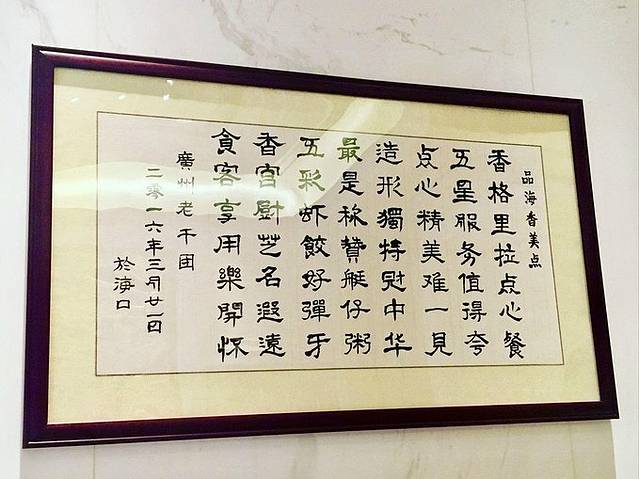 品海香美点
香格里拉点心餐
五星服务值得夸
点心精美难一见
造形獨特冠中华
最是称贊艇仔粥
五彩虾餃好彈牙
香宫厨艺名遐遠
食客享用樂開怀
廣州老干团
二零一六年三月廿一日
於海口